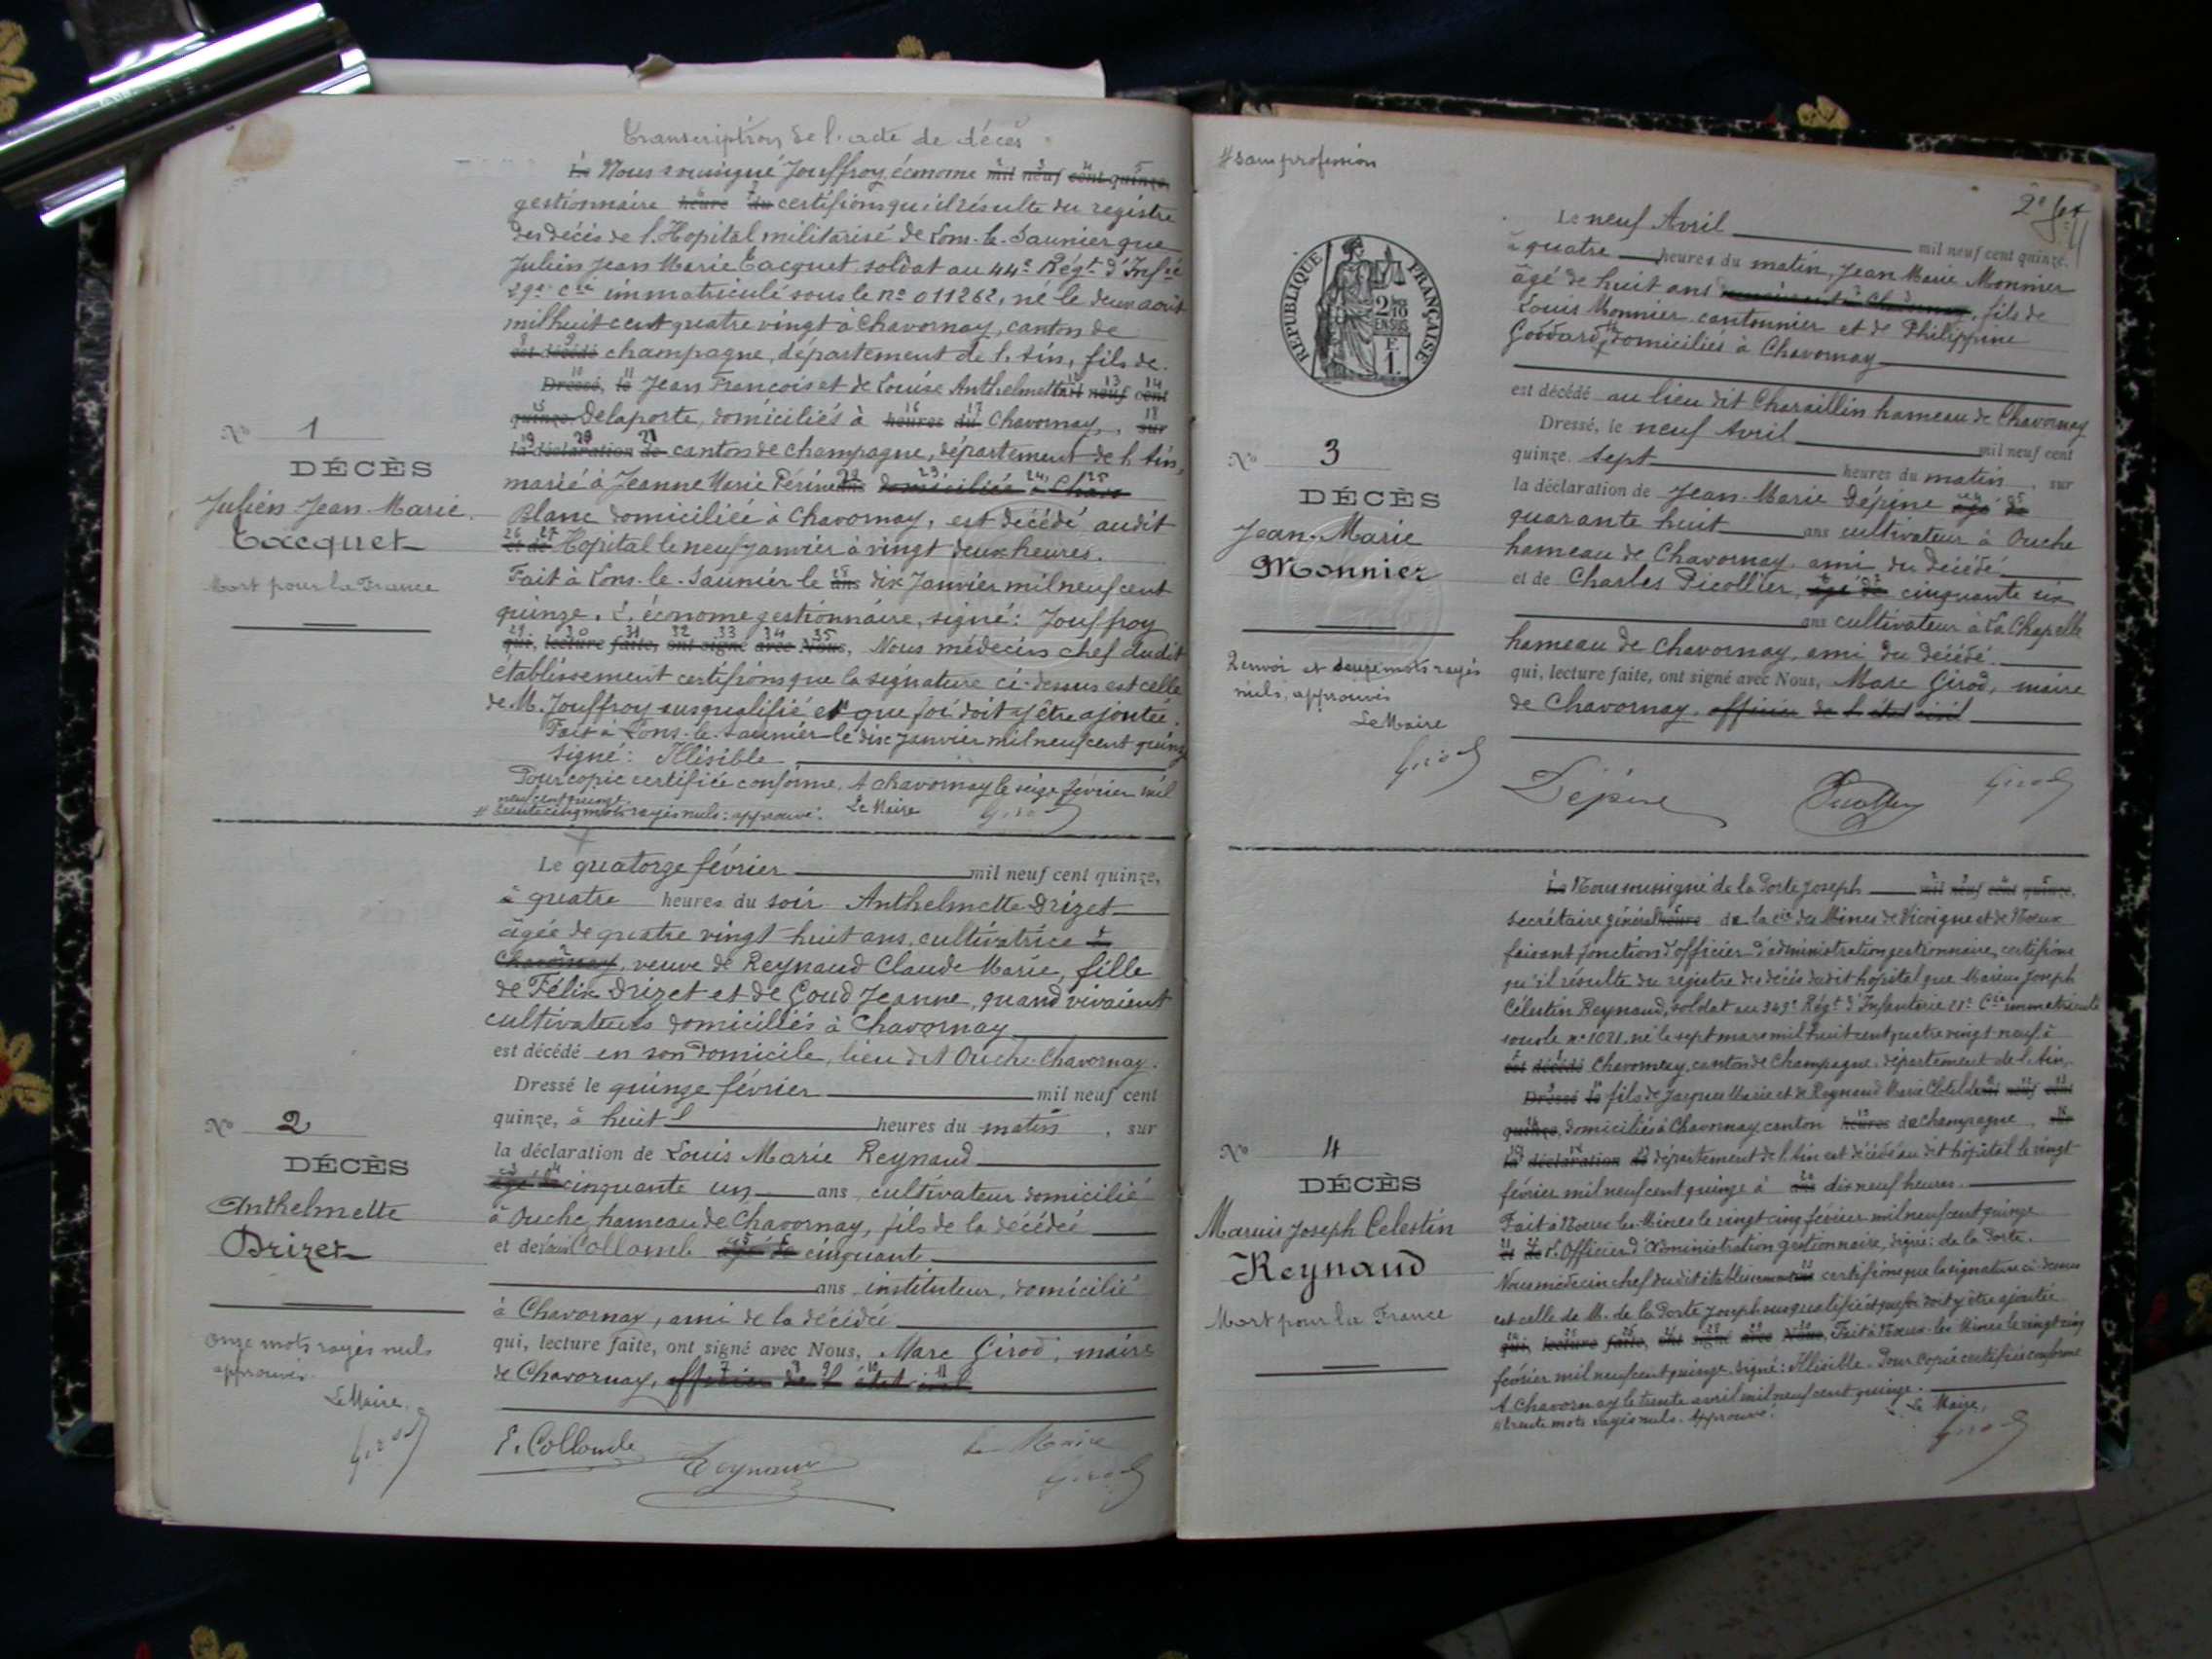 Transcription de l'acte de décès
Le Nous soussigné Jouffroy, économe mil neuf cent quinze,
gestionnaire heure du certifions qu'il résulte du registre
des décès de l'Hopital militarisé de Lons-le-Saunier que
Julien Jean Marie Tacquet soldat au 44e Régt d'Infie
29e Cie immatriculé sous le no 011262, né le deux août
mil huit cent quatre vingt à Chavornay, canton de
est décédé champagne, département de l'Ain, fils de
Dressé, le Jean François et de Louise Anthelmette mil neuf cent
quinze, Delaporte, domiciliés à heures du Chavornay, sur
la déclaration de canton de champagne, département de l'Ain,
marié à Jeanne Marie Périne ans domiciliée à Chavo
Blanc domiciliée à Chavornay, est décédé audit
et de Hopital le neuf janvier à vingt deux heures.
Fait à Lons-le-Saunier le ans dix Janvier mil neuf cent
quinze. L'économe gestionnaire, signé: Jouffroy
qui, lecture faite, ont signé avec Nous, Nous médecin chef dudit
établissement certifions que la signature ci-dessus est celle
de M. Jouffroy susqualifié et que foi doit y être ajoutée.
Fait à Lons-le-Saunier le dix janvier mil neuf cent quinze
signé: Illisible
Pour copie certifiée conforme. A Chavornay le seize février mil
neuf cent quinze.
# trente cinq mots rayés nuls: approuvé. Le Maire
Girod
No 1
DÉCÈS
Julien Jean-Marie
Tacquet
Mort pour la France
Le quatorze février mil neuf cent quinze,
à quatre heures du soir Anthelmette Drizet
âgée de quatre vingt huit ans, cultivatrice à
Chavornay, veuve de Reynaud Claude Marie, fille
de Félix Drizet et de Goud Jeanne, quand vivaient
cultivateurs domiciliés à Chavornay
est décédé en son domicile, lieu dit Ouche-Chavornay.
Dressé le quinze février mil neuf cent
quinze, à huit heures du matin, sur
la déclaration de Louis Marie Reynaud
âgé de cinquante un ans, cultivateur domicilié
à Ouche, hameau de Chavornay, fils de la décédée
et de Collomb âgé de cinquante
ans, instituteur, domicilié
à Chavornay, ami de la décédée
qui, lecture faite, ont signé avec Nous, Marc Girod, maire
de Chavornay, officier de l'état civil
No 2
DÉCÈS
Anthelmette
Drizet
Onze mots rayés nuls
approuvés.
Le Maire
Girod
E. Collomb
Reynaud
Le Maire
Girod
# sans profession
2e fet
RÉPUBLIQUE FRANÇAISE
Le neuf Avril mil neuf cent quinze,
à quatre heures du matin, Jean Marie Monnier
âgé de huit ans, fils de
Louis Monnier cantonnier et de Philippine
Goddard, # domiciliés à Chavornay
est décédé au lieu dit Charaillin hameau de Chavornay
Dressé, le neuf Avril mil neuf cent
quinze, sept heures du matin, sur
la déclaration de Jean-Marie Dépine âgé de
quarante huit ans cultivateur à Ouche
hameau de Chavornay, ami du décédé
et de Charles Picollier, âgé de cinquante six
ans cultivateur à La Chapelle
hameau de Chavornay, ami du décédé.
qui, lecture faite, ont signé avec Nous, Marc Girod, maire
de Chavornay, officier de l'état civil
No 3
DÉCÈS
Jean-Marie
Monnier
Renvoi et mots rayés
nuls, approuvés
Le Maire
Girod
Dépine
Girod
Le Nous soussigné de la Porte Joseph mil neuf cent quinze,
secrétaire général heure de la Cie des Mines de Vicoigne et de Noeux
faisant fonction d'officier d'administration gestionnaire, certifions
qu'il résulte du registre des décès dudit hôpital que Marius Joseph
Célestin Reynaud, soldat au 349e Régt d'Infanterie 21e Cie immatriculé
sous le no 1021, né le sept mars mil huit cent quatre vingt neuf à
est décédé Chavornay, canton de Champagne, département de l'Ain,
Dressé le fils de Jacques Marie et de Reynaud Marie Clotilde mil neuf cent
quinze, domiciliés à Chavornay canton heures de Champagne, sur
la déclaration de département de l'Ain est décédé au dit hôpital le vingt
février mil neuf cent quinze à ans dix neuf heures.
Fait à Noeux-les-Mines le vingt cinq février mil neuf cent quinze
et de L'Officier d'Administration gestionnaire, signé: de la Porte.
Nous médecin chef dudit établissement ans certifions que la signature ci-dessus
est celle de M. de la Porte Joseph susqualifié et que foi doit y être ajoutée
qui, lecture faite, ont signé avec Nous, Fait à Noeux-les-Mines le vingt cinq
février mil neuf cent quinze. signé: Illisible. Pour copie certifiée conforme
A Chavornay le trente avril mil neuf cent quinze.
# trente mots rayés nuls. Approuvé. Le Maire,
Girod
No 4
DÉCÈS
Marius Joseph Celestin
Reynaud
Mort pour la France